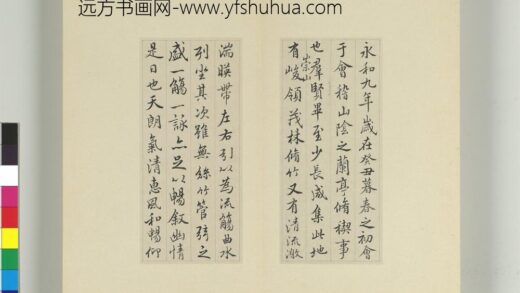 远方书画网-www.yfshuhua.com
永和九年歲在癸丑暮春之初會
于會稽山陰之蘭亭脩禊事
也羣賢畢至少長咸集此地
有崇山峻領茂林脩竹又有清流激
湍暎帶左右引以為流觴曲水
列坐其次雖無絲竹管弦之
盛一觴一詠亦足以暢叙幽情
是日也天朗氣清惠風和暢仰